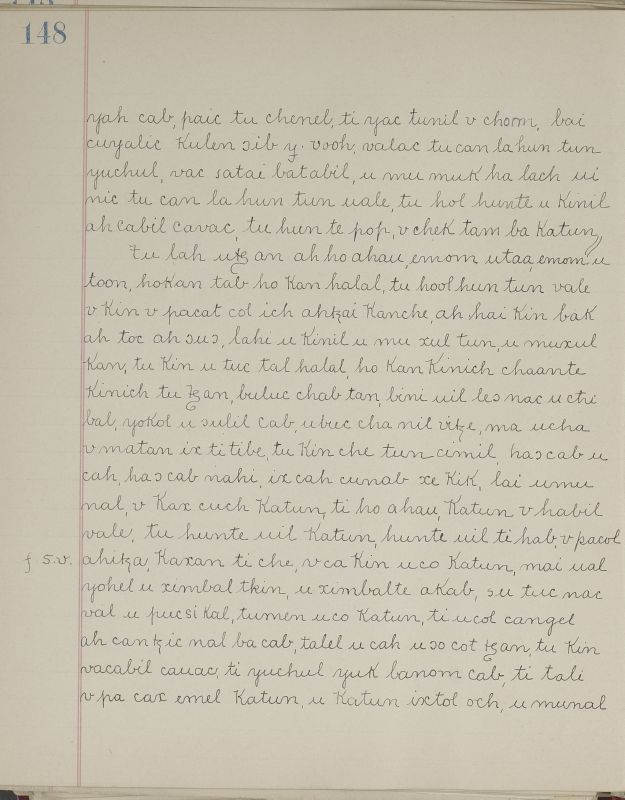 148
yah cab, paic tu chenel, ti yac tunil v chom, bai
cuyalic Kulen ɔib y. vooh, valac tu can lahun tun
yuchul, vac satai batabil, u mu muk ha lach ui
nic tu can la hun tun uale, tu hol hunte u Kinil
ah cabil cavac, tu hun te pop, v chek tam ba Katun,
tu lah utꜩan ah ho ahau, emom utaa, emom u
toon, hokan tab ho Kan halal, tu hool hun tun vale
v Kin v pacat col ich ahtzai Kanche, ah hai Kin bak
ah toc ah ɔuɔ, lahi u Kinil u mu xul tun, u muxul
Kan, tu Kin u tuc tal halal, ho Kan Kinich chaante
Kinich tu ꜩan, buluc chab tan, bini uil les nac u chi
bal, yokol u ɔulil cab, ubuc cha nil vitze, ma ucha
v matan ix ti tibe, tu Kin che tun cimil, haɔ cab u
cah, haɔ cab nahi, ix cah cunab xe Kik, lai umu
nal, v Kax cuch Katun, ti ho ahau, Katun v habil
vale, tu hunte uil Katun, hunte uil ti hab, v pacol
f 5.v. ahitza, Kaxan ti che, v ca Kin uco Katun, mai ual
yohel u ximbal tkin, u ximbalte akab, ɔu tuc nac
val u pucsi Kal, tumen uco Katun, ti ucol cangel
ah cantzic nal ba cab, talel u cah u ɔo cot ꜩan, tu Kin
vacabil cauac, ti yuchul yuk banom cab, ti tali
v pa cax emel Katun, u Katun ixtol och, u munal